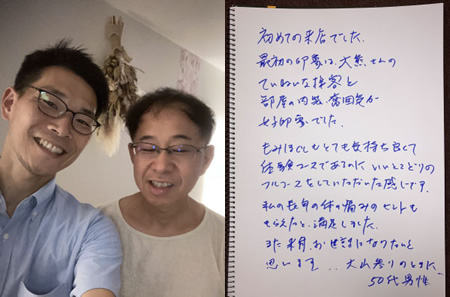 初めての来店でした。
最初の印象は、大熊さんの
ていねいな接客と
部屋の内装、雰囲気が
好印象でした。
もみほぐしもとても気持ち良くて
体験コースであるのに いいとこどりの
フルコースをしていただいた感じです。
私の長年の体の痛みのヒントも
もらえたと、満足しました。
また来月、お世話になりたいと
思います。 大山参りのときに、
50代男性